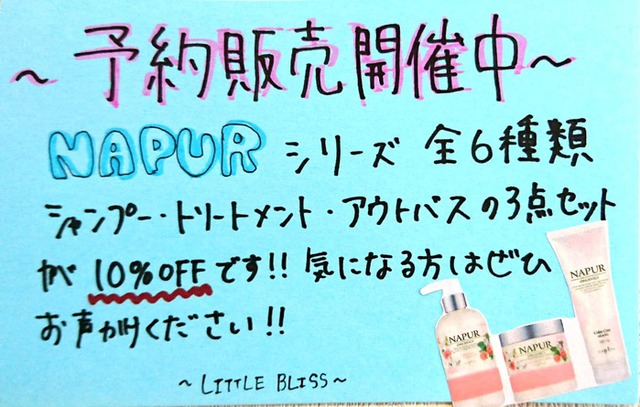 ～予約販売開催中～
NAPUR シリーズ 全6種類
シャンプー・トリートメント・アウトバスの3点セット
が 10%OFFです!! 気になる方はぜひ
お声がけください!!
～LITTLE BLISS～
NAPUR
NAPUR
NAPUR